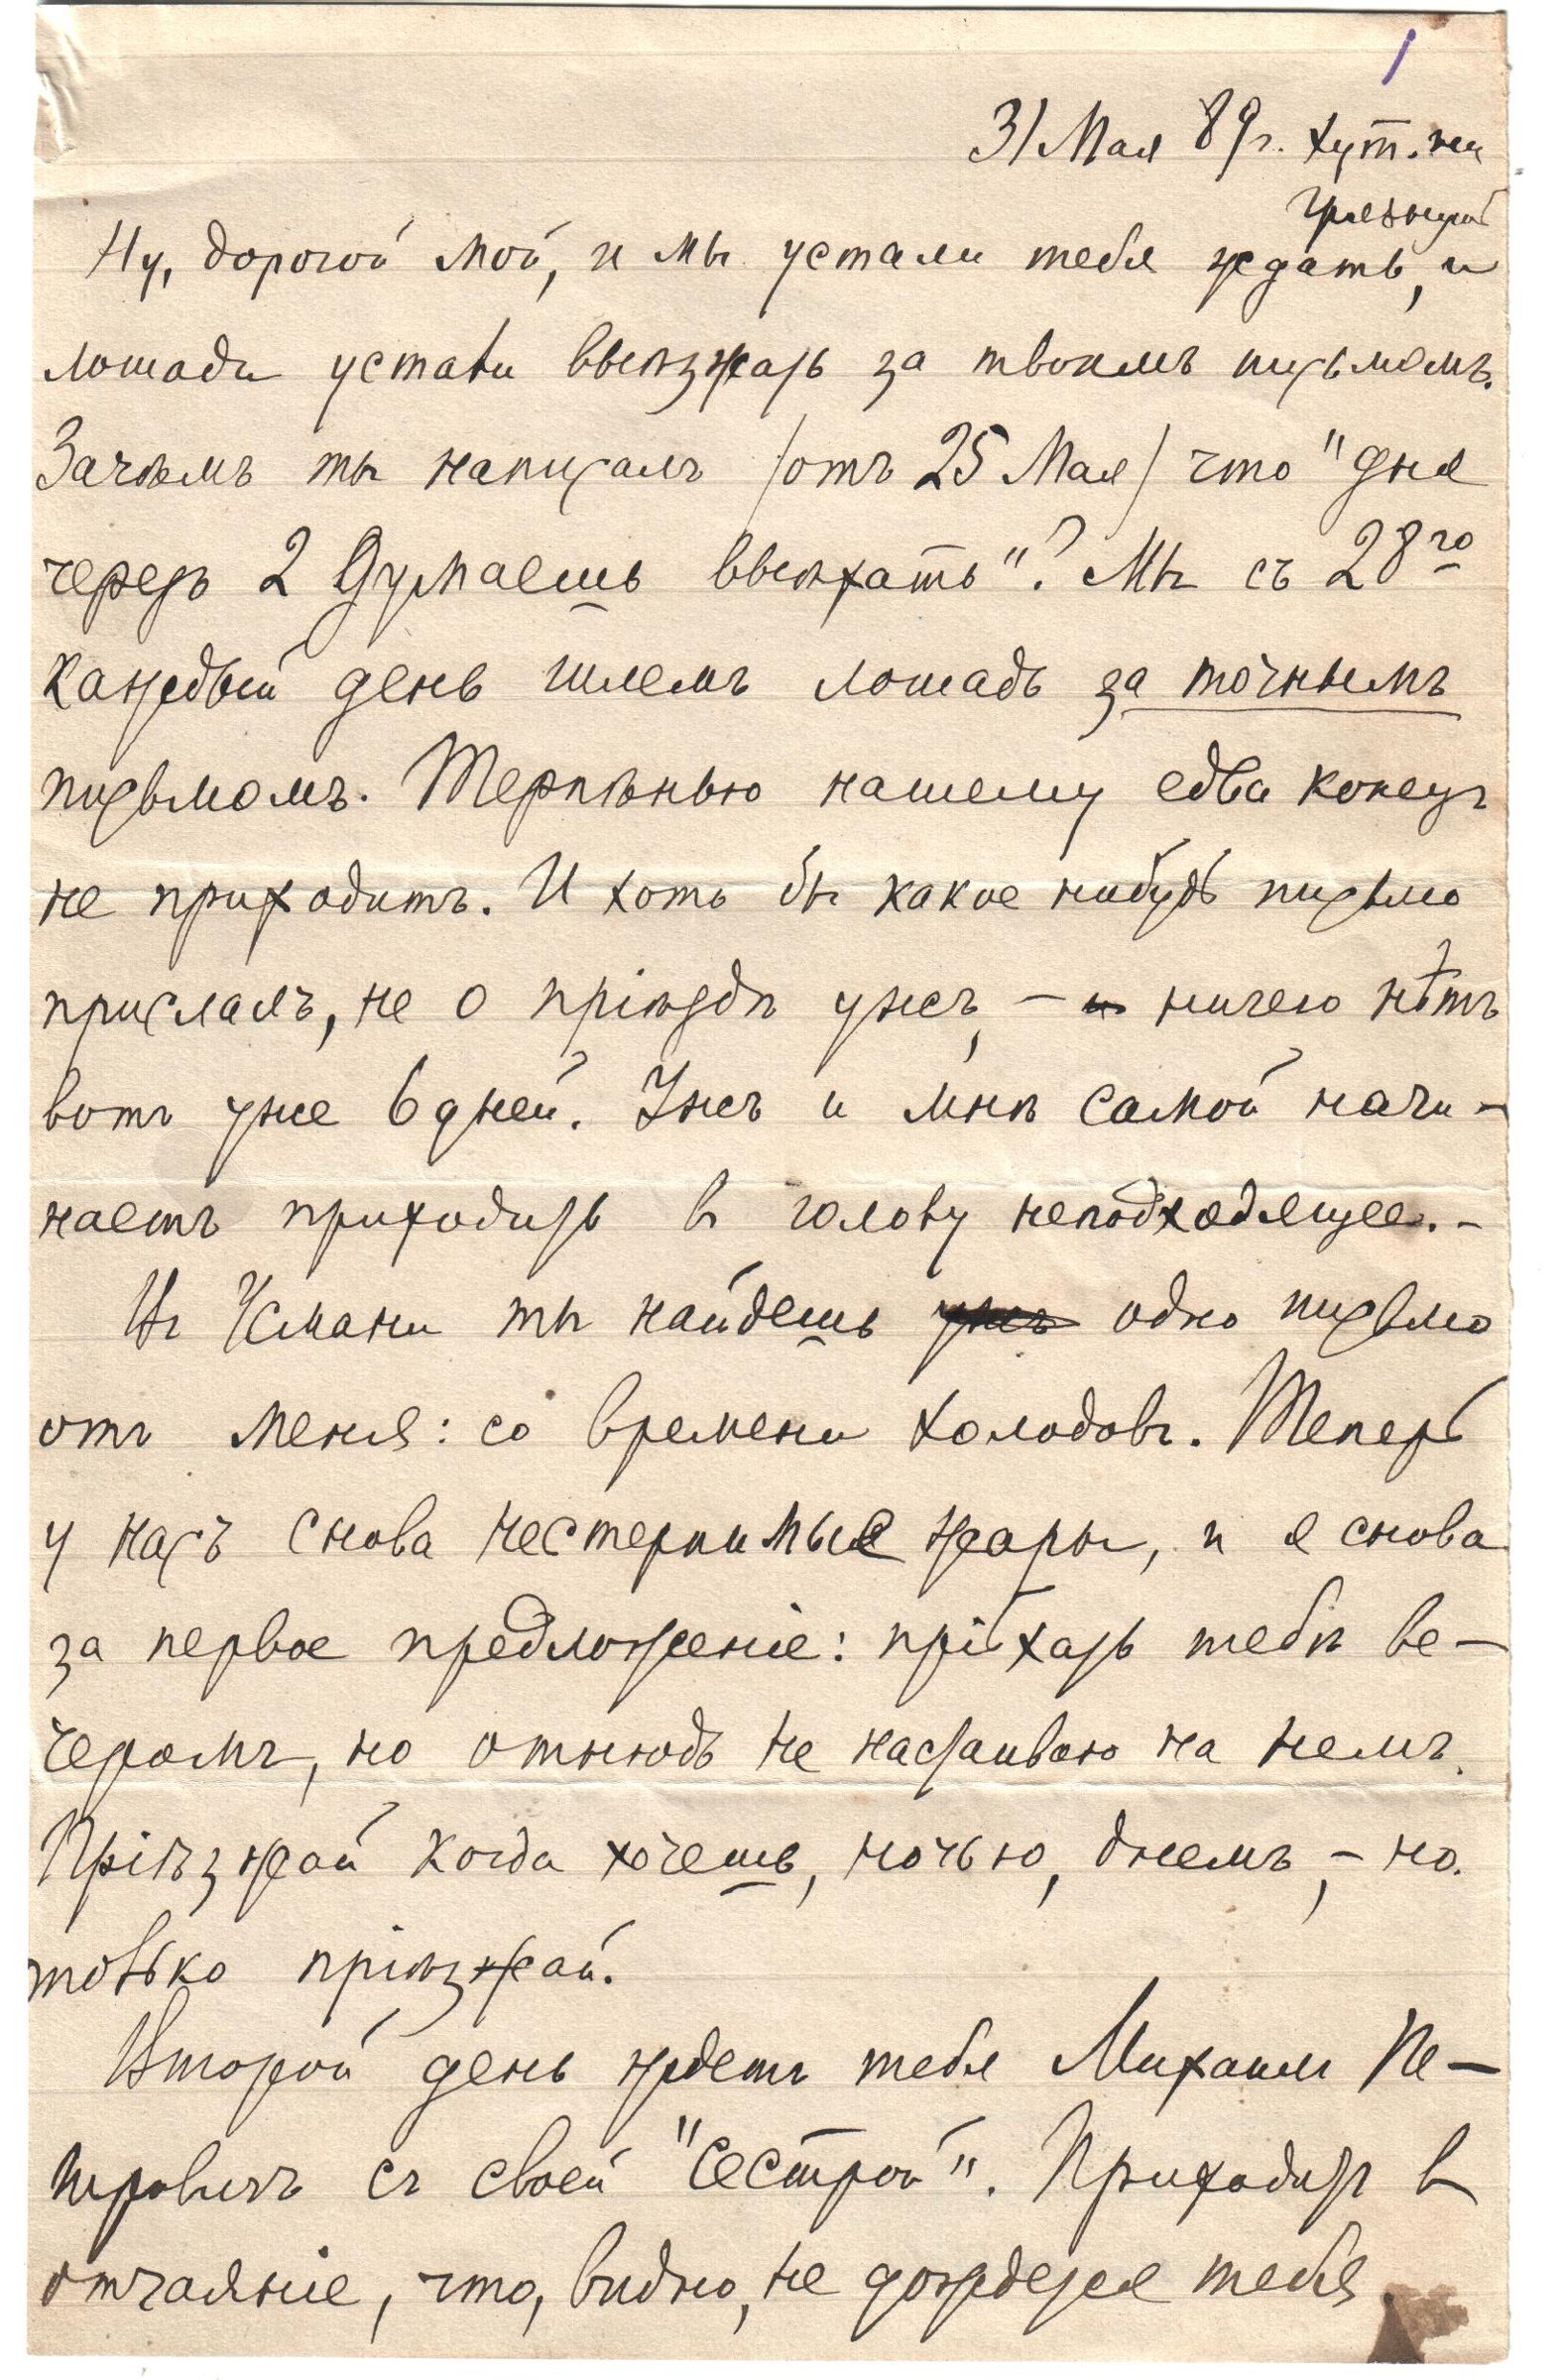 1
31 Мая 89 г. хут. на
Ну, дорогой мой, и мы устали тебя ждать, и
лошади устали выѣзжать за твоимъ письмомъ.
Зачѣмъ ты написалъ /отъ 25 Мая/ что "дня
черезъ 2 думаешь выѣхать"? Мы съ 28го
каждый день шлемъ лошадь за точнымъ
письмомъ. Терпѣнью нашему едва конецъ
не приходитъ. И хоть бы какое нибудь письмо
прислалъ, не о пріѣздѣ ужъ, – ничего нѣтъ
вотъ уже 6 дней. Ужъ и мнѣ самой начи–
наетъ приходить въ голову неподходящее. –
Въ Усмани ты найдешь одно письмо
отъ меня: со времени холодовъ. Теперь
у насъ снова нестерпимые жары, и я снова
за первое предложеніе: пріѣхать тебѣ ве–
черомъ, но отнюдь не настаиваю на немъ.
Пріѣзжай когда хочешь, ночью, днемъ, – но
только пріѣзжай.
Второй день ждетъ тебя Михаилъ Пе–
тровичъ съ своей "сестрой". Приходитъ въ
отчаяніе, что, видно, не дождется тебя